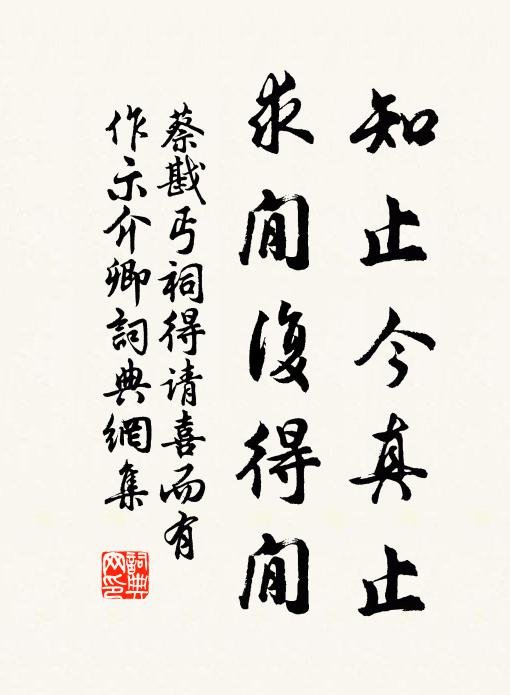 知止今真止
求閒復得閒
蔡戡丐祠得请喜而有
作示介卿詞典網集
詞典网印